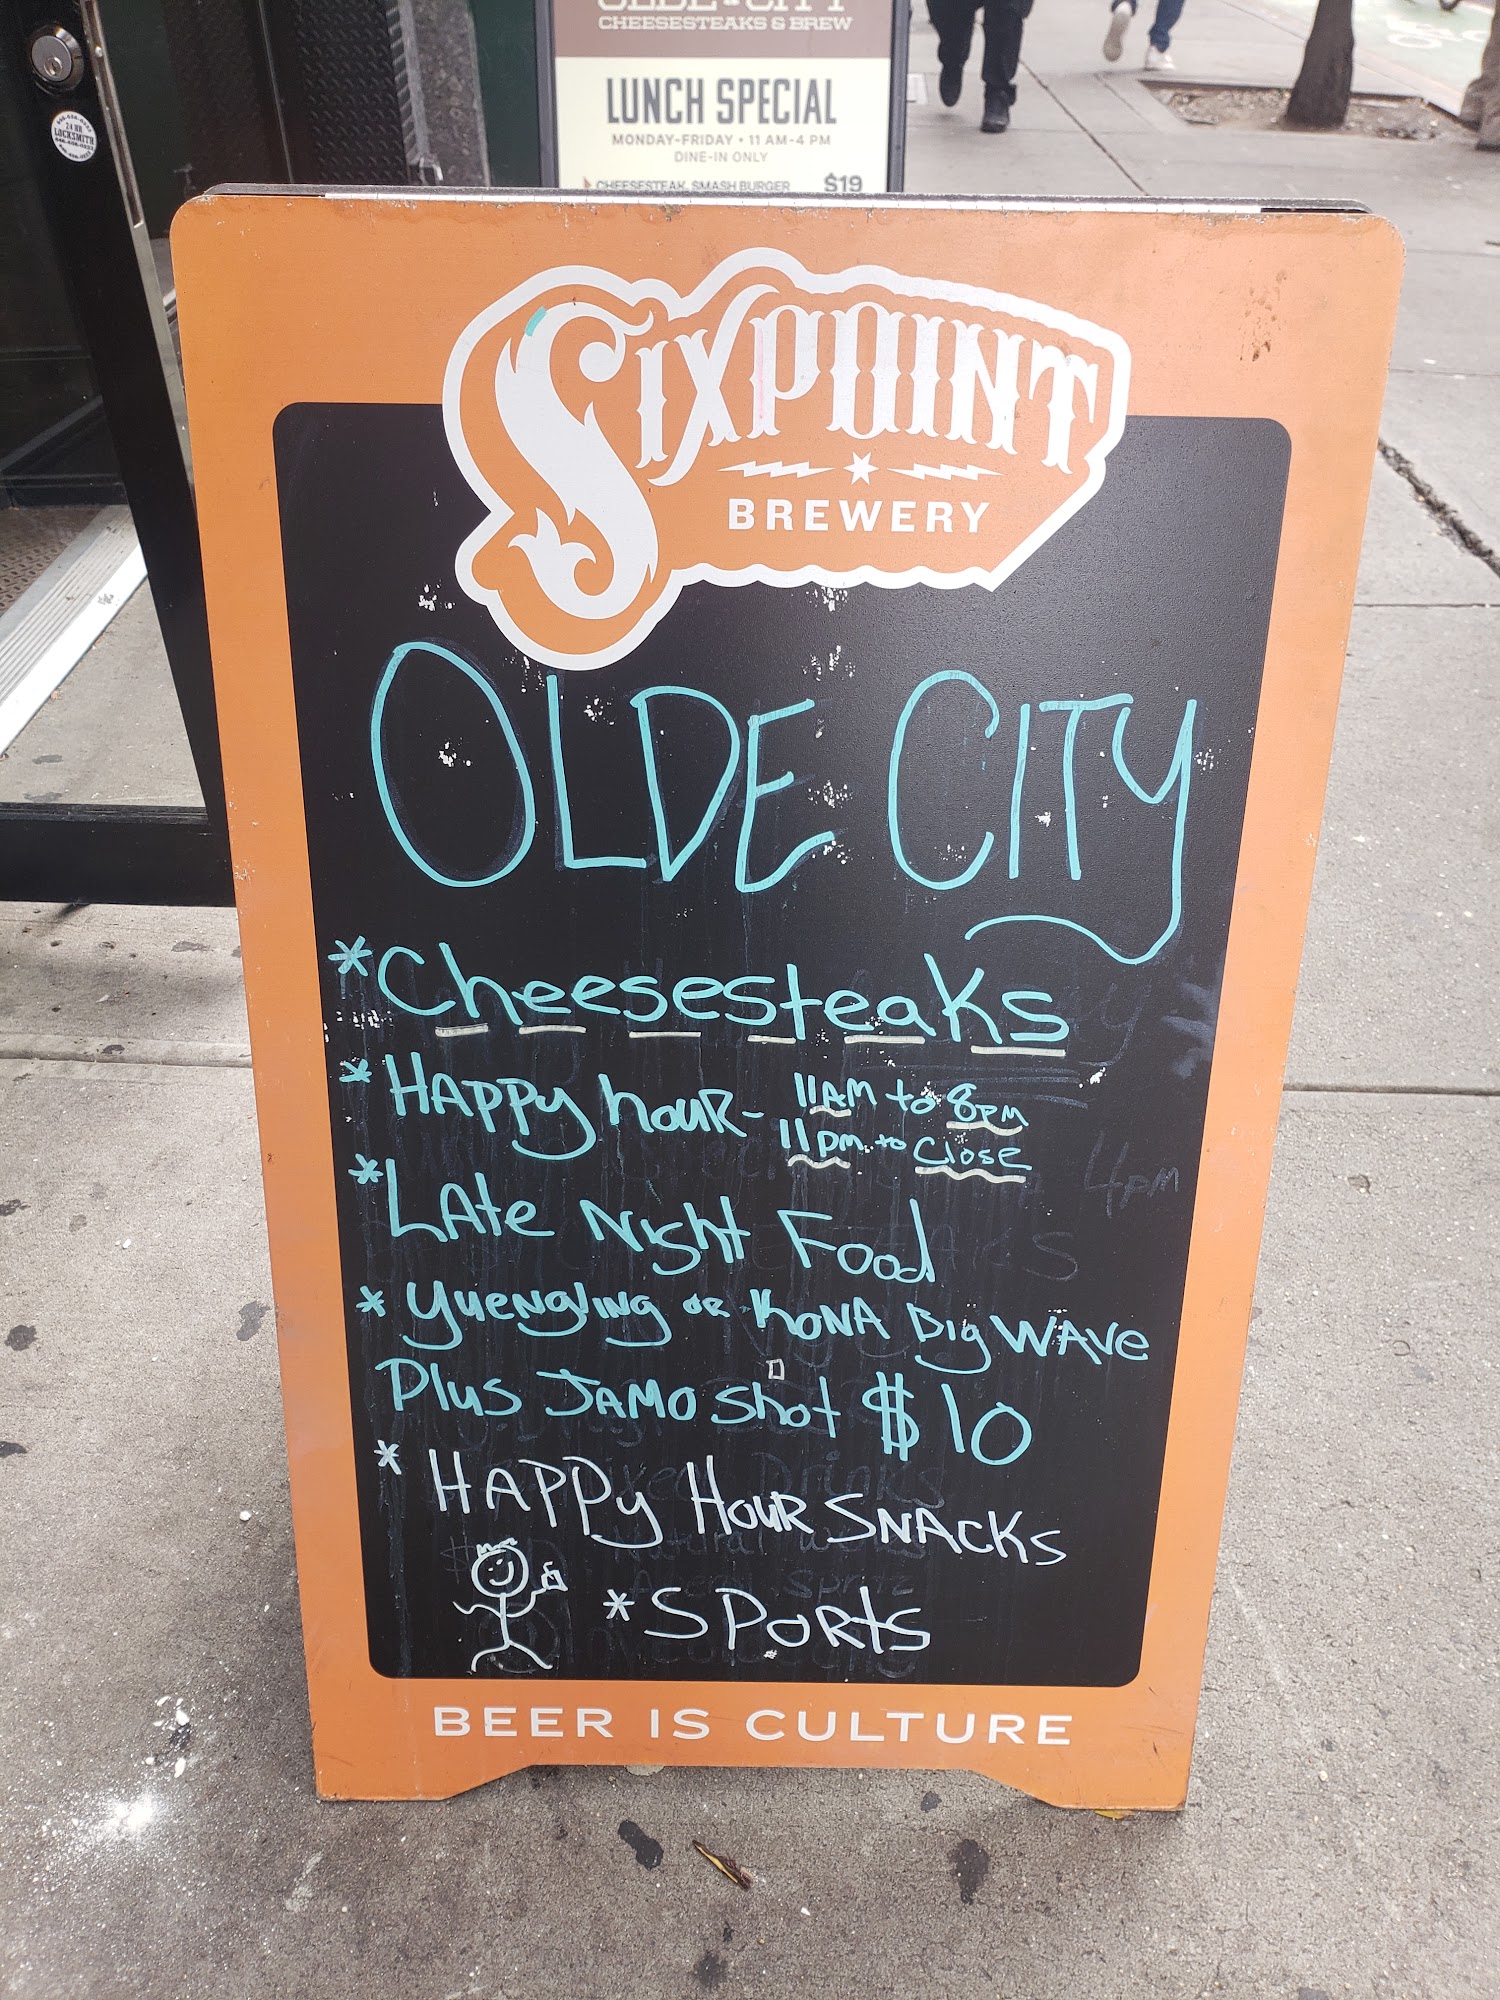 OLDE-CITY
CHEESESTEAKS & BREW
LUNCH SPECIAL
MONDAY-FRIDAY • 11 AM-4 PM
DINE-IN ONLY
CHEESESTEAK, SMASH BURGER $19
24 HR
LOCKSMITH
SIXPOINT
BREWERY
OLDE CITY
*Cheesesteaks
*HAPPy houR - 11AM to 8PM
11pm to Close
*LAte Night Food
* yuengling or KONA Big WAVe
Plus JAMO Shot $10
* HAPPy HOUR SNACKS
*SPORtS
4pm
BEER IS CULTURE